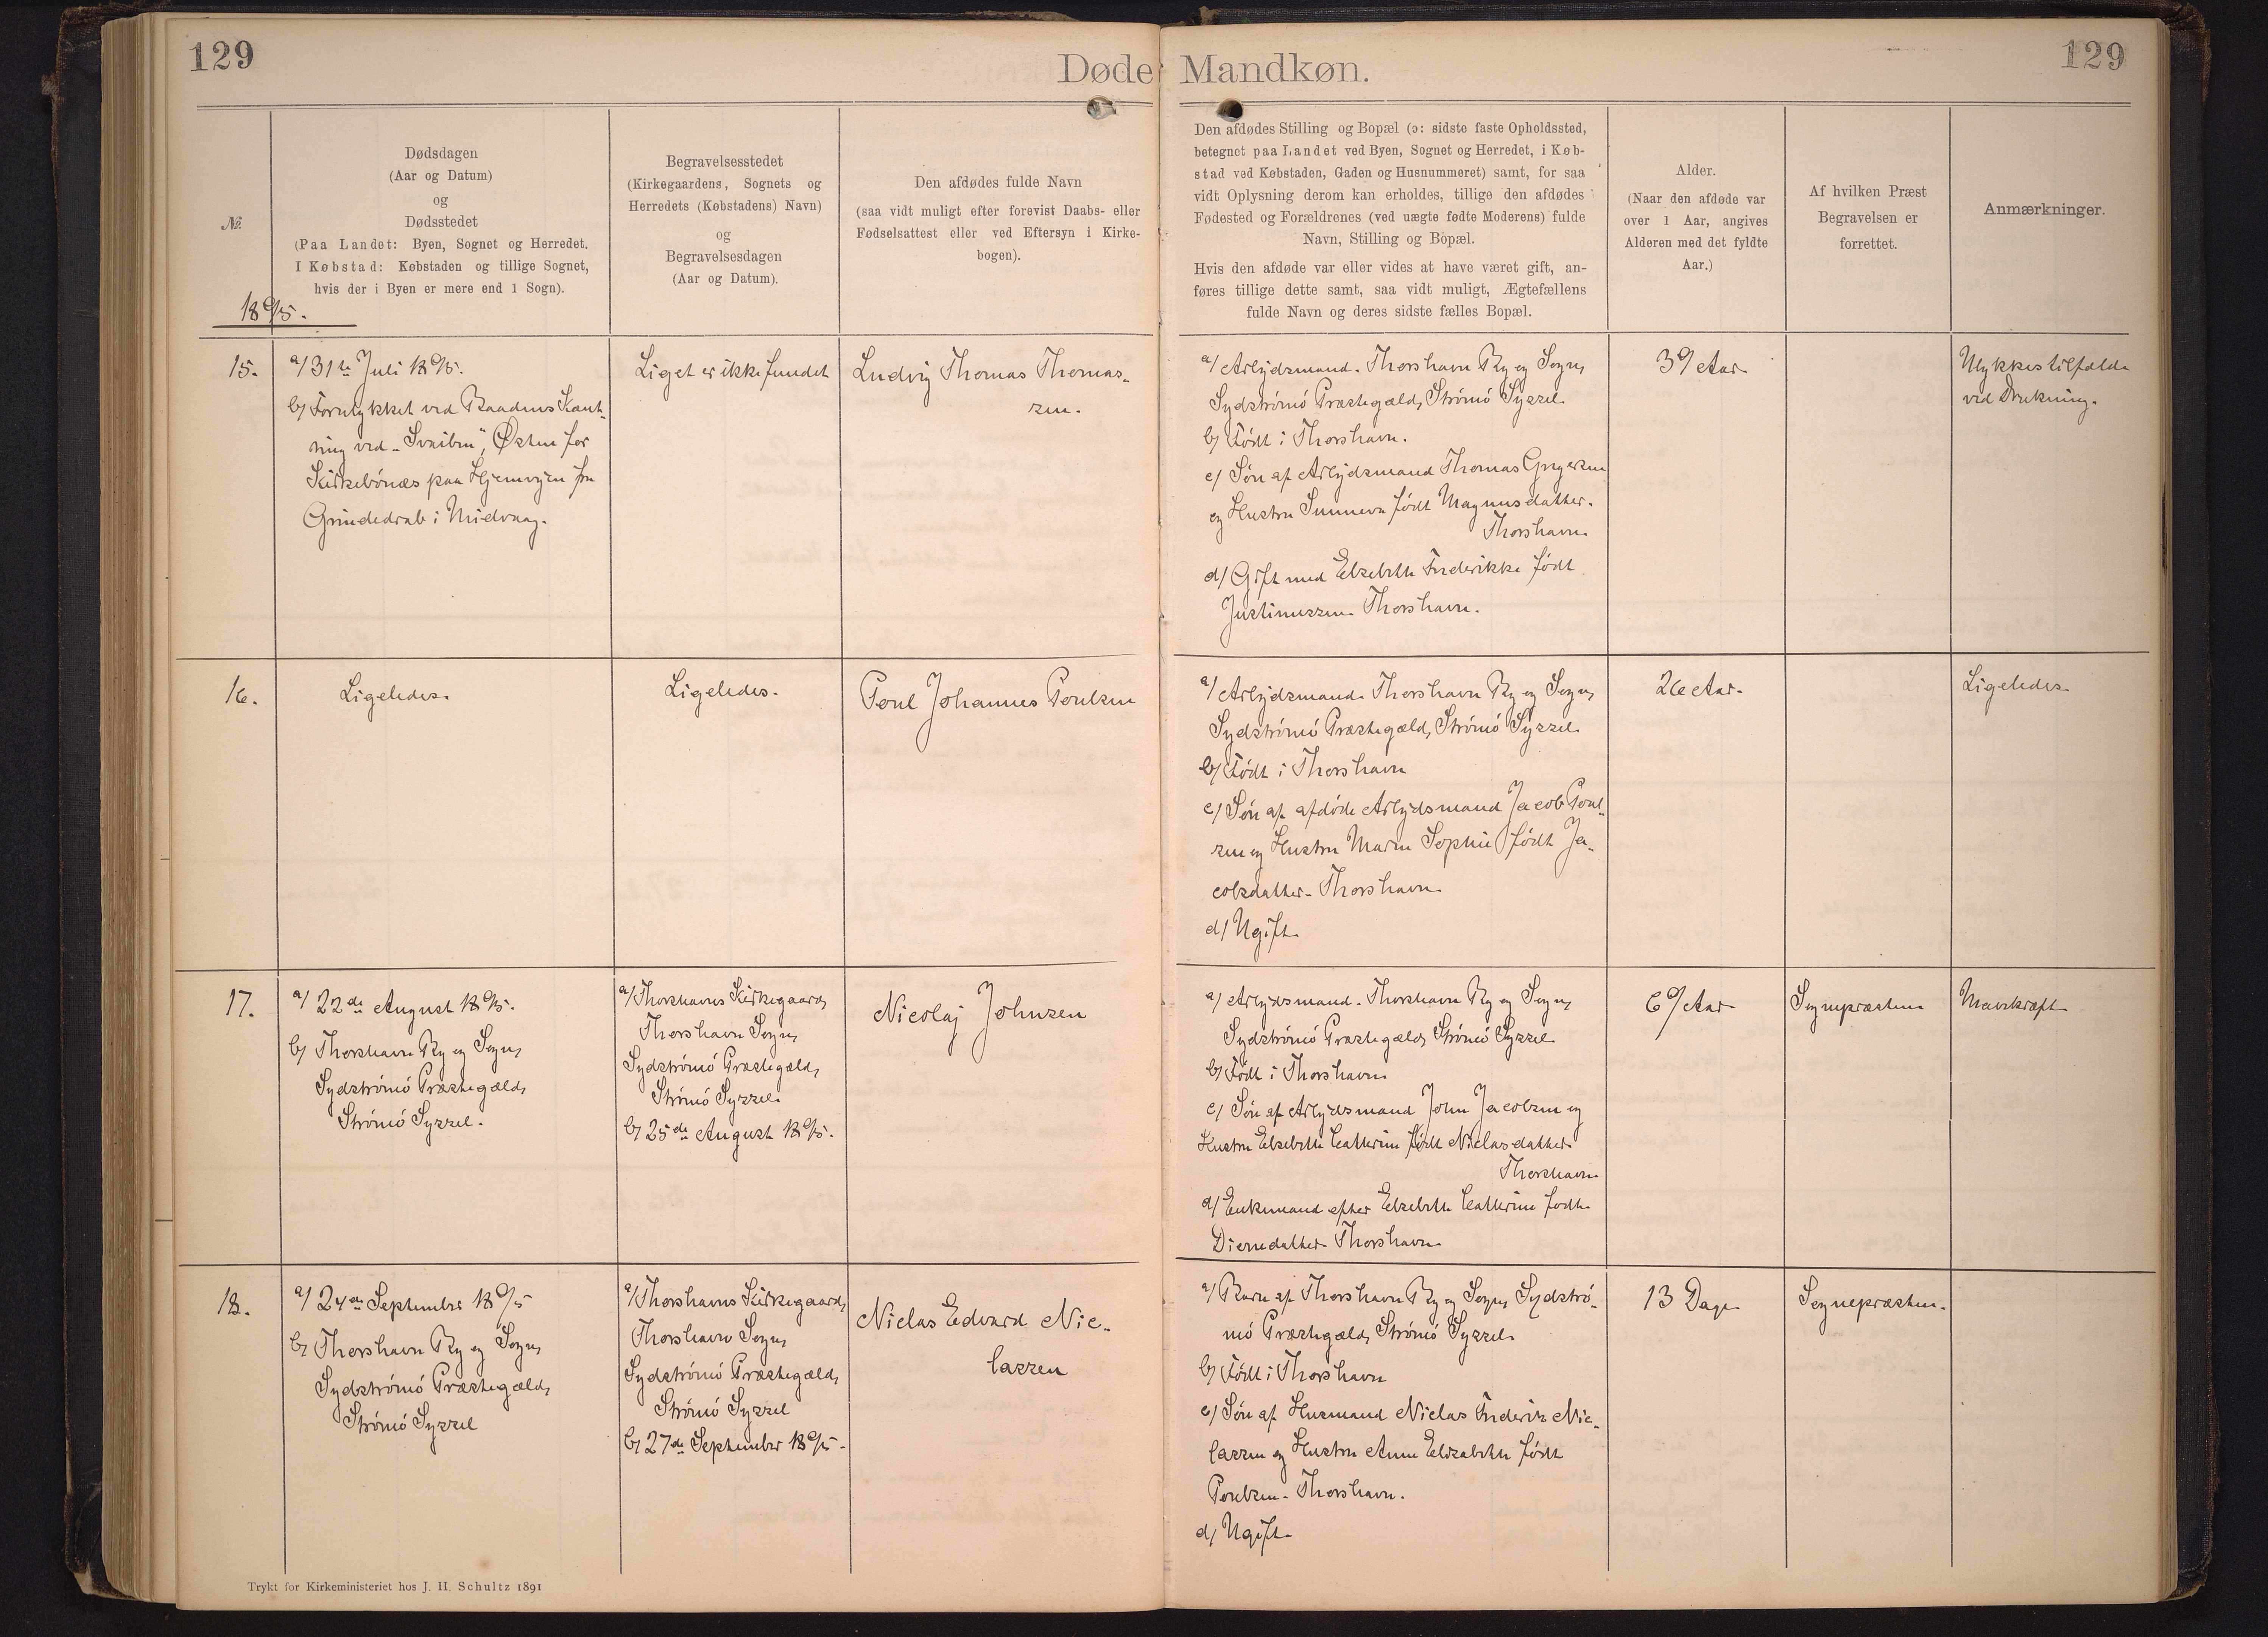 129
Døde Mandkøn.
129
№
Dødsdagen
(Aar og Datum)
og
Dødsstedet
(Paa Landet: Byen, Sognet og Herredet.
I Købstad: Købstaden og tillige Sognet,
hvis der i Byen er mere end 1 Sogn).
Begravelsesstedet
(Kirkegaardens, Sognets og
Herredets (Købstadens) Navn)
og
Begravelsesdagen
(Aar og Datum).
Den afdødes fulde Navn
(saa vidt muligt efter forevist Daabs- eller
Fødselsattest eller ved Eftersyn i Kirke-
bogen).
Den afdødes Stilling og Bopæl (ɔ: sidste faste Opholdssted,
betegnet paa Landet ved Byen, Sognet og Herredet, i Køb-
stad ved Købstaden, Gaden og Husnummeret) samt, for saa
vidt Oplysning derom kan erholdes, tillige den afdødes
Fødested og Forældrenes (ved uægte fødte Moderens) fulde
Navn, Stilling og Bopæl.
Hvis den afdøde var eller vides at have været gift, an-
føres tillige dette samt, saa vidt muligt, Ægtefællens
fulde Navn og deres sidste fælles Bopæl.
Alder.
(Naar den afdøde var
over 1 Aar, angives
Alderen med det fyldte
Aar.)
Af hvilken Præst
Begravelsen er
forrettet.
Anmærkninger.
1895.
15.
a/ 31te Juli 1895.
b/ Forulykket ved Baadens Kænt-
ring ved "Svaiben", Østen for
Kirkebönæs paa Hjemvejen fra
Grindedrab i Midvaag.
Liget er ikke fundet
Ludvig Thomas Thomas-
sen.
a/ Arbejdsmand. Thorshavn By og Sogn,
Sydströmö Præstegæld, Strömö Syssel.
b/ Födt i Thorshavn.
c/ Sön af Arbejdsmand Thomas Gregersen
og Hustru Sunneva födt Magnusdatter.
Thorshavn.
d/ Gift med Elsebeth Frederikke födt
Justinussen. Thorshavn.
39 Aar
Ulykkestilfælde
ved Drukning.
16.
Ligeledes.
Ligeledes.
Poul Johannes Poulsen
a/ Arbejdsmand. Thorshavn By og Sogn,
Sydströmö Præstegæld, Strömö Syssel.
b/ Födt i Thorshavn
c/ Sön af afdöde Arbejdsmand Jacob Poul-
sen og Hustru Maren Sophie födt Ja-
cobsdatter. Thorshavn.
d/ Ugift.
26 Aar.
Ligeledes.
17.
a/ 22de August 1895.
b/ Thorshavn By og Sogn,
Sydströmö Præstegæld,
Strömö Syssel.
a/ Thorshavns Kirkegaard,
Thorshavn Sogn,
Sydströmö Præstegæld,
Strömö Syssel.
b/ 25de August 1895.
Nicolaj Johnsen
a/ Arbejdsmand. Thorshavn By og Sogn,
Sydströmö Præstegæld, Strömö Syssel.
b/ Födt i Thorshavn.
c/ Sön af Arbejdsmand John Jacobsen og
Hustru Elsebeth Catherine födt Niclasdatter
Thorshavn.
d/ Enkemand efter Elsebeth Catherine födt.
Thorshavn.
69 Aar
Sognepræsten.
Mavekræft.
18.
a/ 24de September 1895
b/ Thorshavn By og Sogn,
Sydströmö Præstegæld,
Strömö Syssel
a/ Thorshavns Kirkegaard,
Thorshavn Sogn,
Sydströmö Præstegæld,
Strömö Syssel
b/ 27de September 1895.
Niclas Edvard Nic-
lassen
a/ Barn af Thorshavn By og Sogn, Sydströ-
mö Præstegæld, Strömö Syssel.
b/ Födt i Thorshavn
c/ Sön af Husmand Niclas Frederik Nic-
lassen og Hustru Anne Elisabeth födt
Poulsen. Thorshavn.
d/ Ugift.
13 Dage
Sognepræsten.
Trykt for Kirkeministeriet hos J. H. Schultz 1891